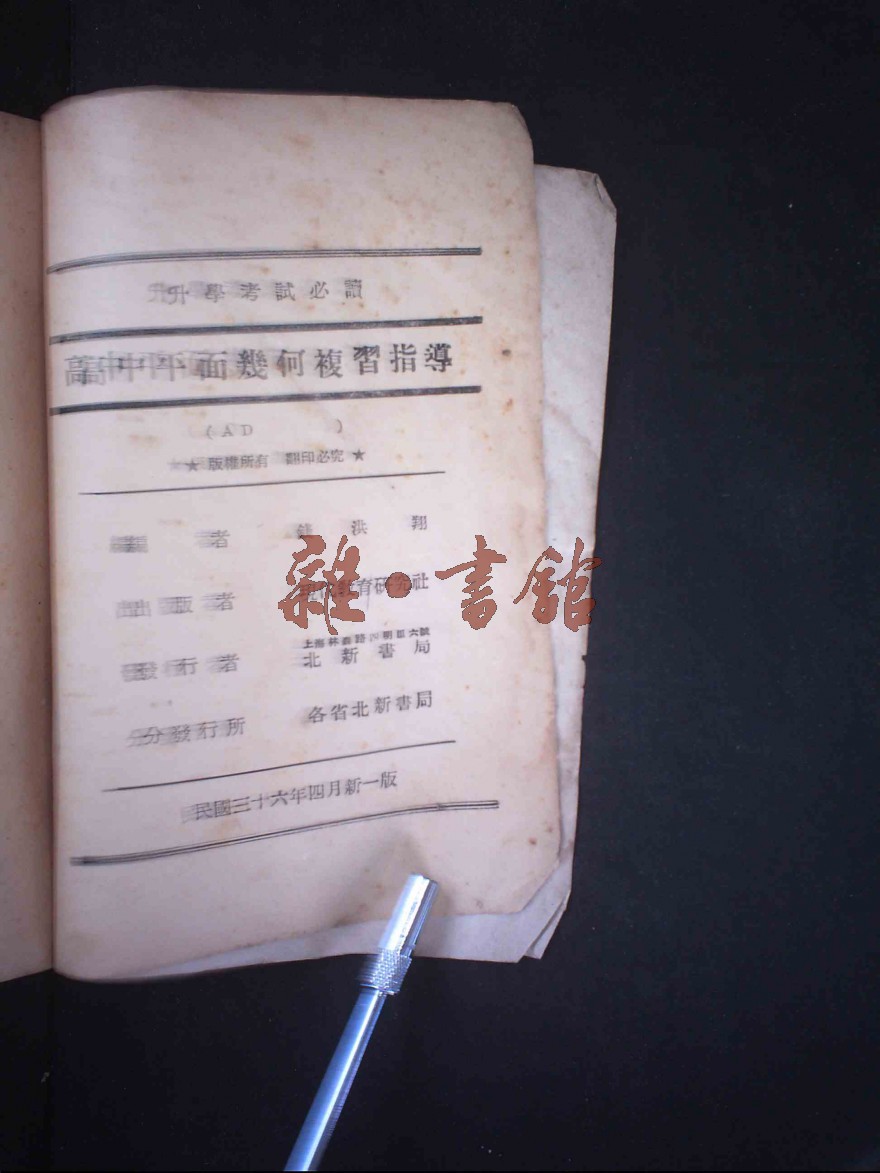 升學考試必讀
高中平面幾何複習指導
(AD )
★ 版權所有 翻印必究 ★
編者 錢洪翔
出版者 現代教育研究社
上海 路四明里六號
發行者 北新書局
分發行所 各省北新書局
民國三十六年四月新一版
雜·書館